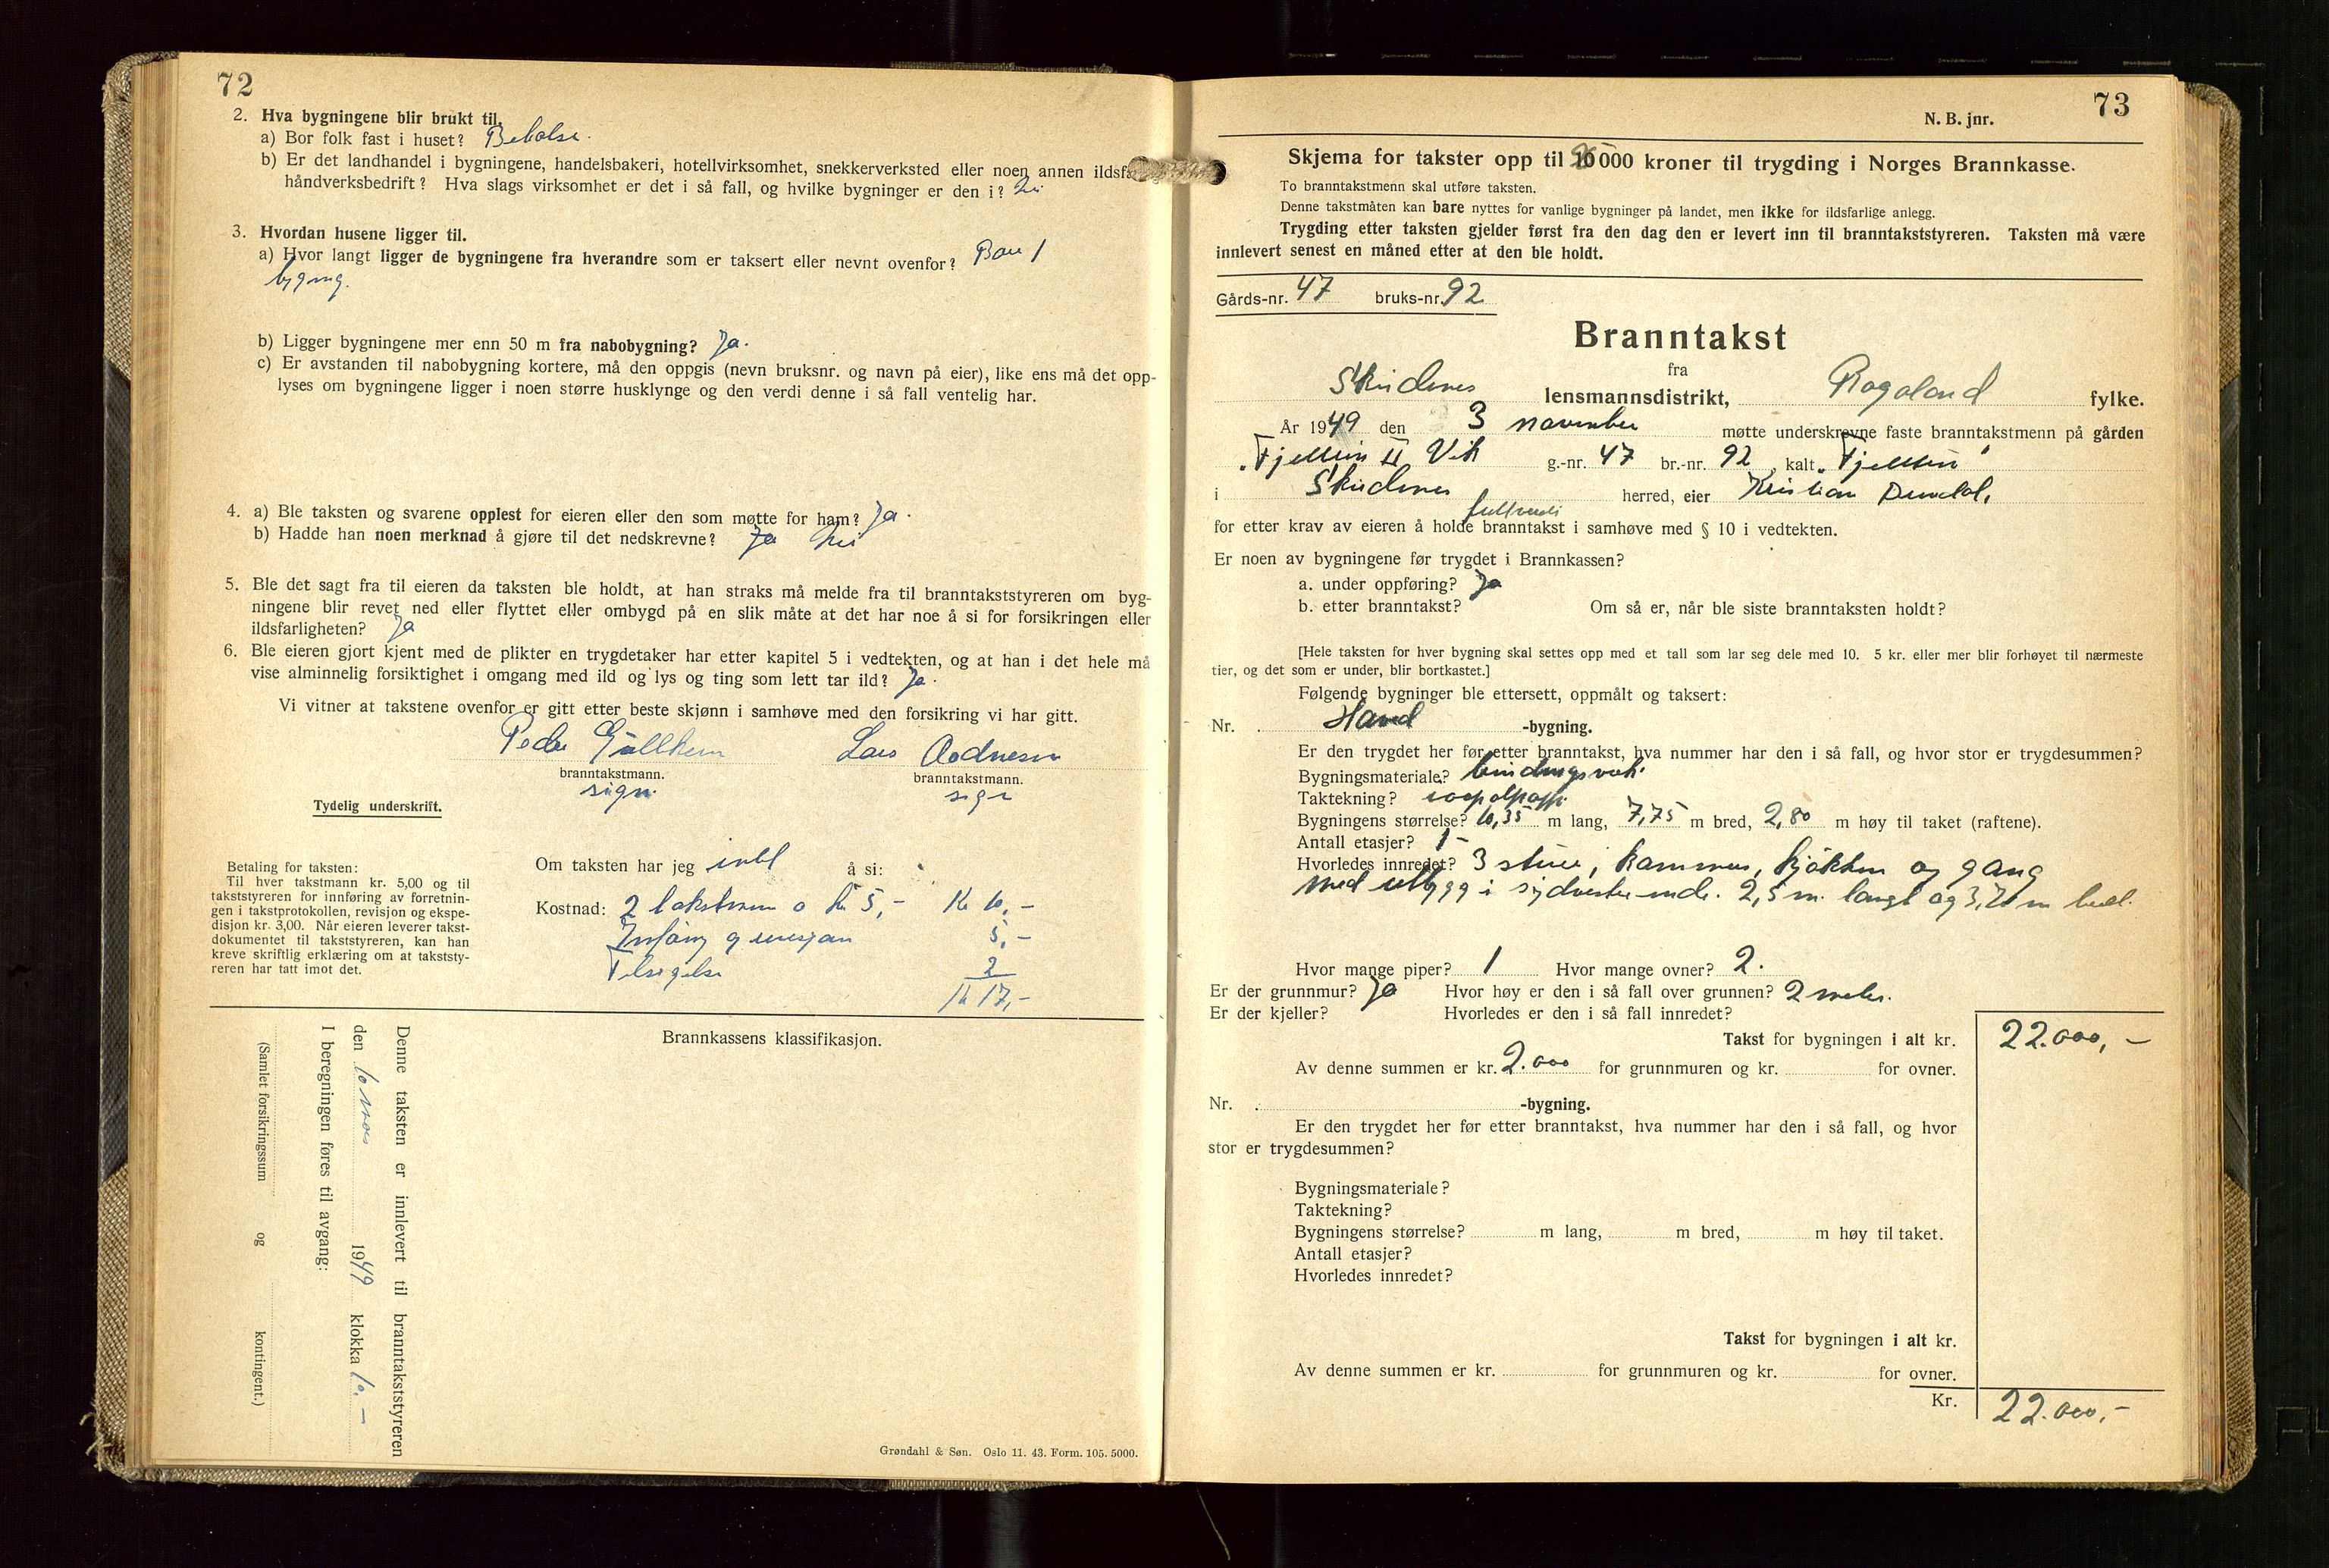 72
2. Hva bygningene blir brukt til.
a) Bor folk fast i huset? Bebolse.
b) Er det landhandel i bygningene, handelsbakeri, hotellvirksomhet, snekkerverksted eller noen annen ildsfa
håndverksbedrift? Hva slags virksomhet er det i så fall, og hvilke bygninger er den i? Nei
3. Hvordan husene ligger til.
a) Hvor langt ligger de bygningene fra hverandre som er taksert eller nevnt ovenfor? Bare 1
bygning.
b) Ligger bygningene mer enn 50 m fra nabobygning? Ja.
c) Er avstanden til nabobygning kortere, må den oppgis (nevn bruksnr. og navn på eier), like ens må det opp-
lyses om bygningene ligger i noen større husklynge og den verdi denne i så fall ventelig har.
4. a) Ble taksten og svarene opplest for eieren eller den som møtte for ham? Ja.
b) Hadde han noen merknad å gjøre til det nedskrevne? Ja Nei
5. Ble det sagt fra til eieren da taksten ble holdt, at han straks må melde fra til branntakststyreren om byg-
ningene blir revet ned eller flyttet eller ombygd på en slik måte at det har noe å si for forsikringen eller
ildsfarligheten? Ja
6. Ble eieren gjort kjent med de plikter en trygdetaker har etter kapitel 5 i vedtekten, og at han i det hele må
vise alminnelig forsiktighet i omgang med ild og lys og ting som lett tar ild? Ja.
Vi vitner at takstene ovenfor er gitt etter beste skjønn i samhøve med den forsikring vi har gitt.
Peder Lars Aadnesen
branntakstmann. branntakstmann.
sign. sign
Tydelig underskrift.
Betaling for taksten:
Til hver takstmann kr. 5,00 og til
takststyreren for innføring av forretnin-
gen i takstprotokollen, revisjon og ekspe-
disjon kr. 3,00. Når eieren leverer takst-
dokumentet til takststyreren, kan han
kreve skriftlig erklæring om at takststy-
reren har tatt imot det.
Om taksten har jeg intet å si:
Kostnad: 2 takstmenn a kr 5,- Kr 10,-
Innføring 5,-
Tilsigelse 2
Kr 17,-
Brannkassens klassifikasjon.
Denne taksten er innlevert til branntakststyreren
den 10 nov 1949 klokka 10.-
I beregningen føres til avgang:
(Samlet forsikringssum og kontingent.)
Grøndahl & Søn. Oslo 11. 43. Form. 105. 5000.
73
N. B. jnr.
Skjema for takster opp til 10 000 kroner til trygding i Norges Brannkasse.
To branntakstmenn skal utføre taksten.
Denne takstmåten kan bare nyttes for vanlige bygninger på landet, men ikke for ildsfarlige anlegg.
Trygding etter taksten gjelder først fra den dag den er levert inn til branntakststyreren. Taksten må være
innlevert senest en måned etter at den ble holdt.
Gårds-nr. 47 bruks-nr. 92
Branntakst
fra
Skudenes lensmannsdistrikt, Rogaland fylke.
År 1949 den 3 november møtte underskrevne faste branntakstmenn på gården
II Vik g.-nr. 47 br.-nr. 92, kalt
i Skudenes herred, eier Kristian
fullverdi
for etter krav av eieren å holde branntakst i samhøve med § 10 i vedtekten.
Er noen av bygningene før trygdet i Brannkassen?
a. under oppføring? Ja
b. etter branntakst? Om så er, når ble siste branntaksten holdt?
[Hele taksten for hver bygning skal settes opp med et tall som lar seg dele med 10. 5 kr. eller mer blir forhøyet til nærmeste
tier, og det som er under, blir bortkastet.]
Følgende bygninger ble ettersett, oppmålt og taksert:
Nr. . -bygning.
Er den trygdet her før etter branntakst, hva nummer har den i så fall, og hvor stor er trygdesummen?
Bygningsmateriale? bindingsverk.
Taktekning?
Bygningens størrelse? 10,35 m lang, 7,75 m bred, 2,80 m høy til taket (raftene).
Antall etasjer? 1-
Hvorledes innredet? 3 stuer, kammer, kjøkken og gang
med utbygg i sydvestre ende. 2,5 m. langt og 3,70 m bred.
Hvor mange piper? 1 Hvor mange ovner? 2.
Er der grunnmur? Ja Hvor høy er den i så fall over grunnen? 2 meter.
Er der kjeller? Hvorledes er den i så fall innredet?
Takst for bygningen i alt kr. 22.000,-
Av denne summen er kr. 2.000 for grunnmuren og kr. for ovner.
Nr. . -bygning.
Er den trygdet her før etter branntakst, hva nummer har den i så fall, og hvor
stor er trygdesummen?
Bygningsmateriale?
Taktekning?
Bygningens størrelse? m lang, m bred, m høy til taket.
Antall etasjer?
Hvorledes innredet?
Takst for bygningen i alt kr.
Av denne summen er kr. for grunnmuren og kr. for ovner.
Kr. 22.000,-